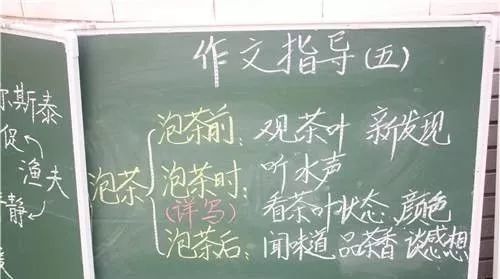 作文指导(五)
尔斯泰
促
渔夫
静
泡茶
泡茶前: 观茶叶 新发现
泡茶时: 听水声
(详写) 看茶叶状态、颜色
泡茶后: 闻味道 品茶香 谈感想